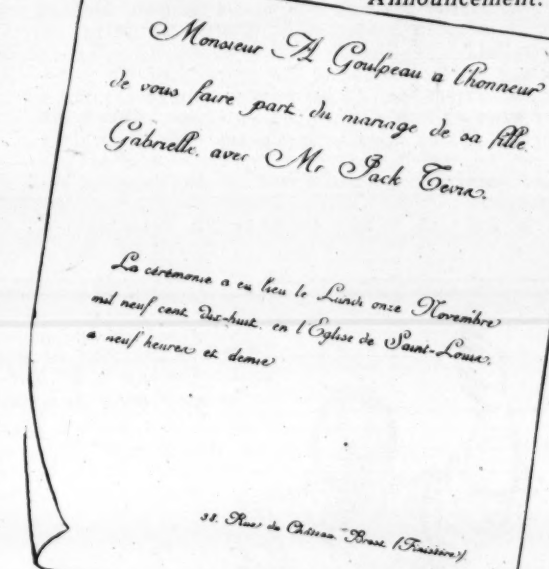 Announcement.
Monsieur A Goulpeau a l'honneur
de vous faire part du mariage de sa fille
Gabrielle, avec Mr Jack
La cérémonie a eu lieu le Lundi onze Novembre
mil neuf cent dix-huit, en l'Eglise de Saint-Louis,
a neuf heures et demie
38, Rue du Château Brest (Finistère)